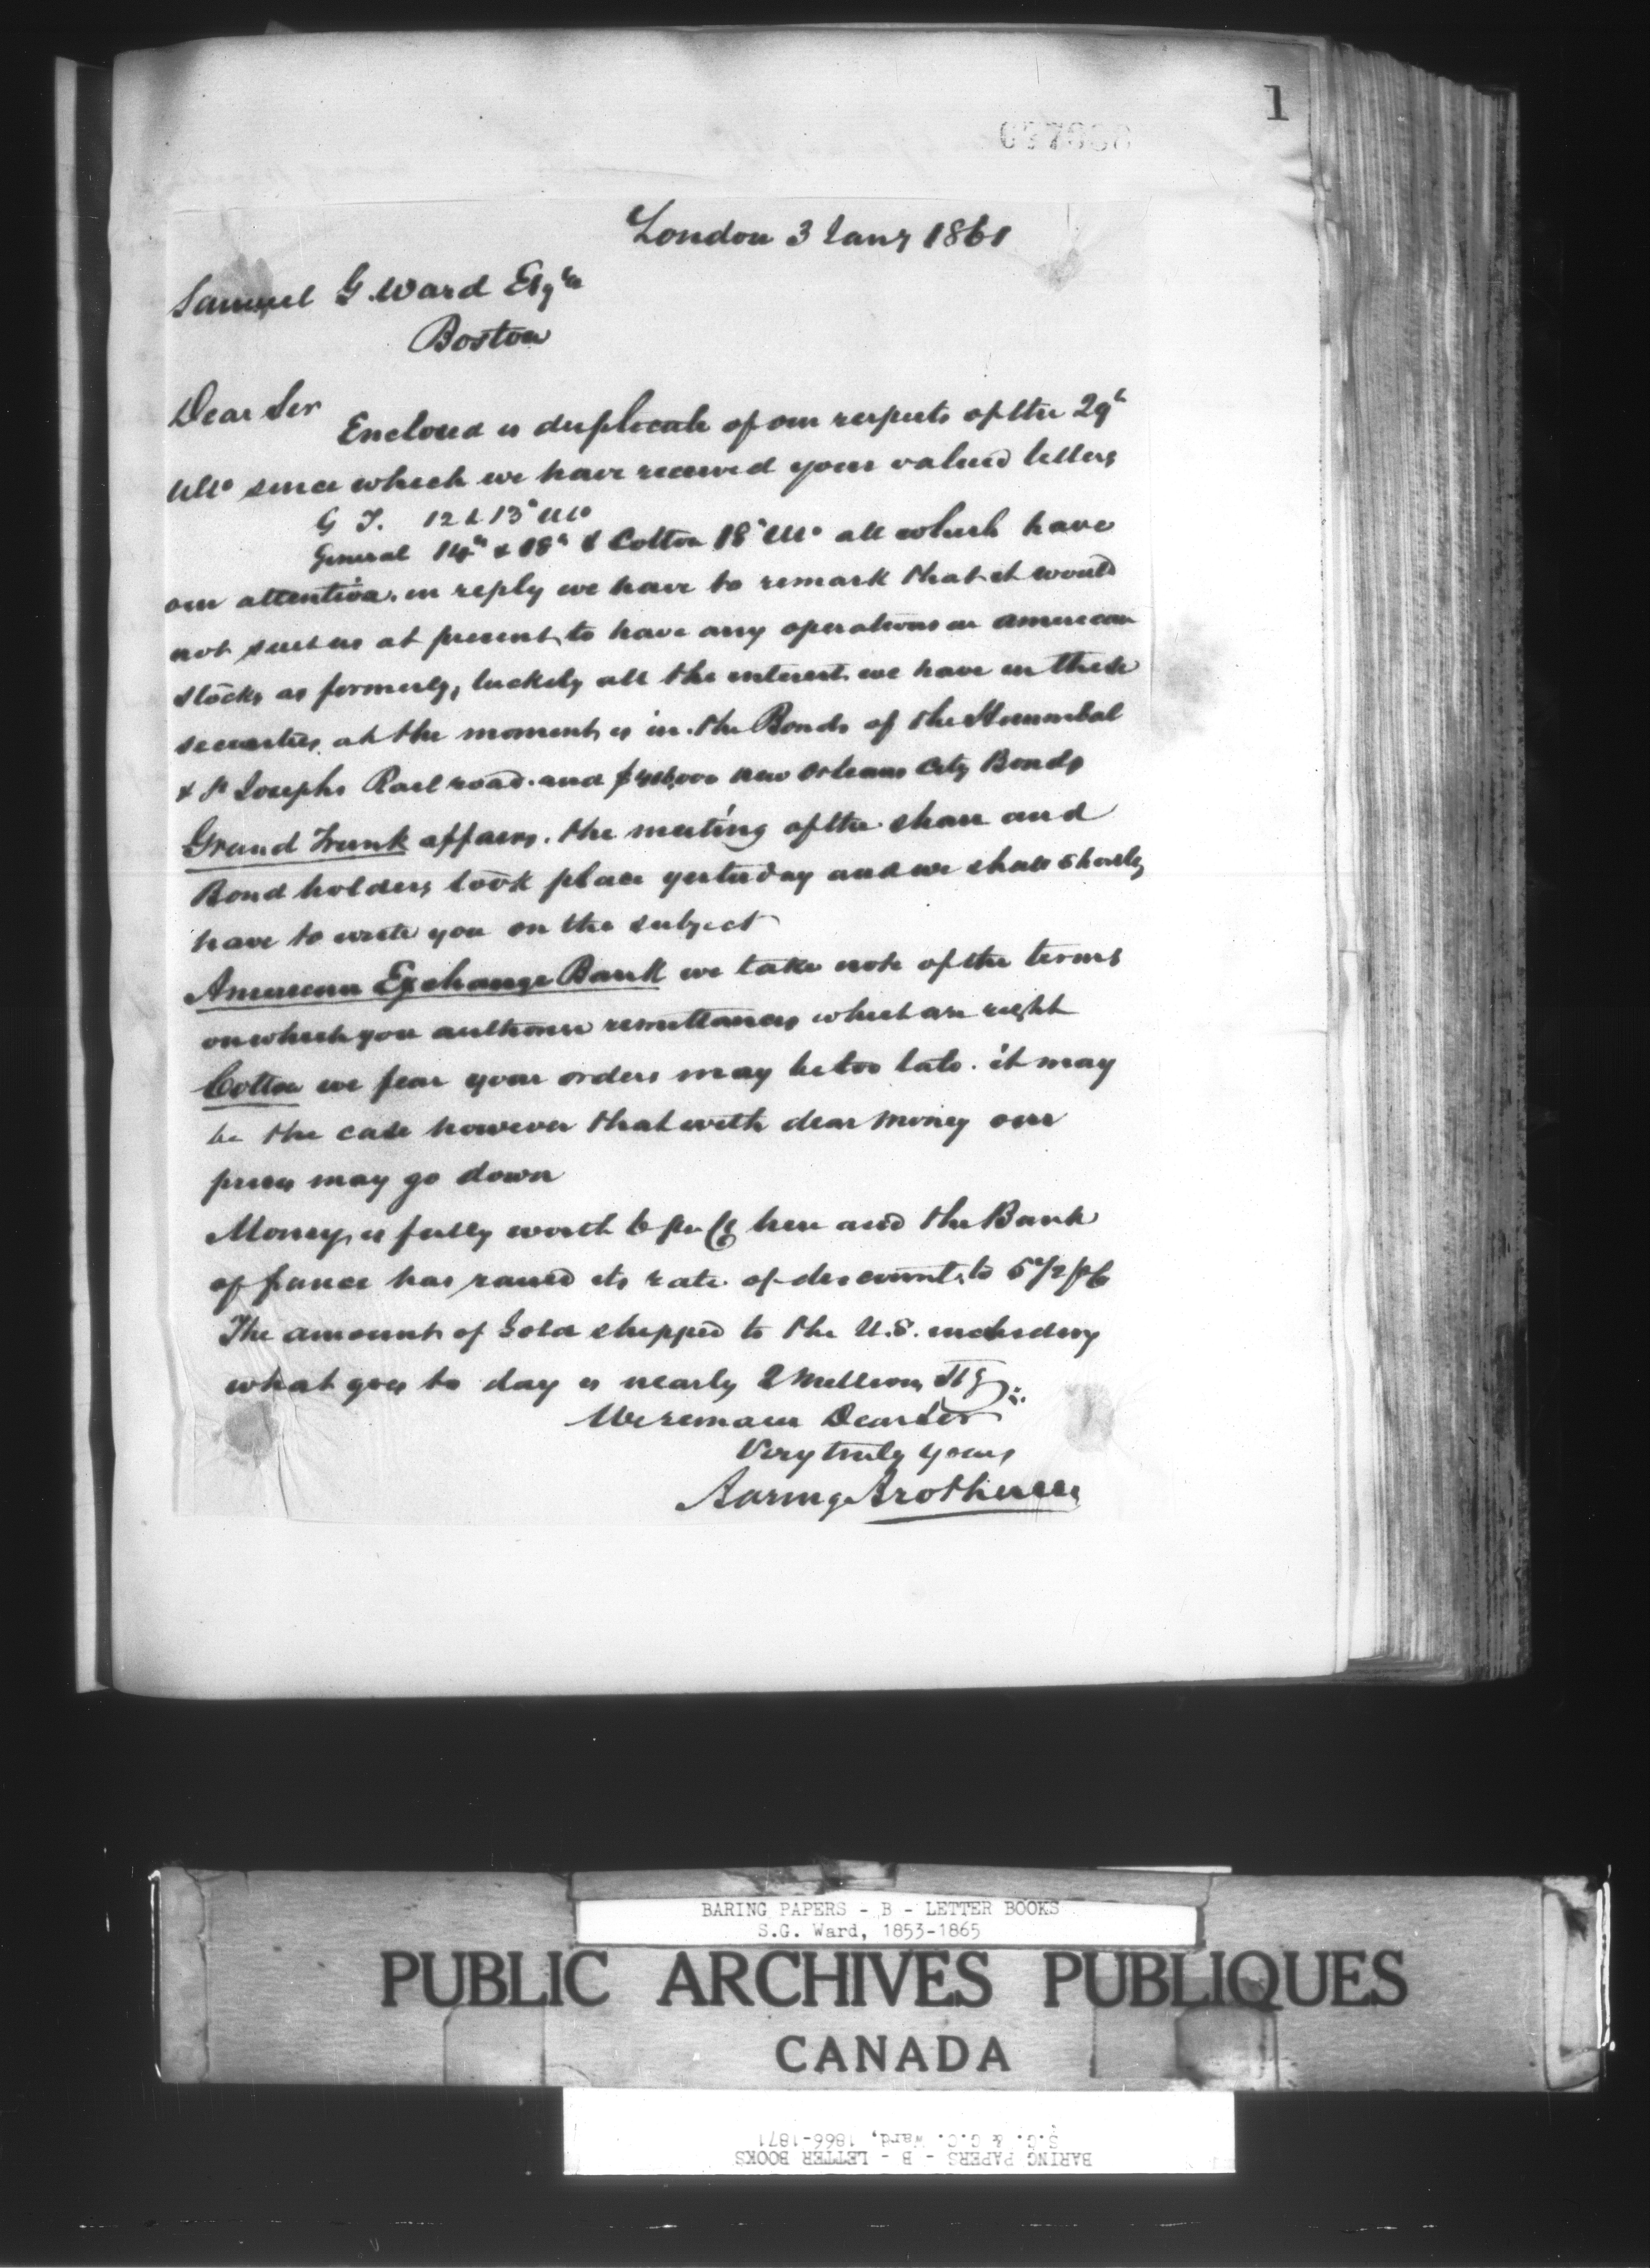 1
London 3 Jany 1861
Samuel G. Ward Esqre
Boston
Dear Sir
Enclosed is duplicate of our respects of the 29th
Ulto since which we have received your valued letters
G T. 12 & 13 Ulto
General 14th & 18th & Cotton 18 Ulto all which have
our attention. in reply we have to remark that it would
not suit us at present to have any operations in american
stocks as formerly, luckily all the interest we have in these
securities at the moment is in the Bonds of the Hannibal
& St Josephs Rail road and new Orleans City Bonds
Grand Trunk affairs. the meeting of the share and
Bond holders took place yesterday and we shall shortly
have to write you on the subject
American Exchange Bank we take note of the terms
on which you authorise remittances which are right
Cotton we fear your orders may be too late. it may
be the case however that with dear money our
prices may go down
Money is fully worth 6 per Ct here and the Bank
of france has raised its rate of discount to 5 1/2 pC
The amount of Gold shipped to the U.S. including
what goes to day is nearly 2 Millions Stg
We remain Dear Sir
Very truly yours
Baring Brothers
BARING PAPERS - B - LETTER BOOKS
S.G. Ward, 1853-1865
PUBLIC ARCHIVES PUBLIQUES
CANADA
BARING PAPERS - B - LETTER BOOKS
S.G. & G.C. Ward, 1866-1871